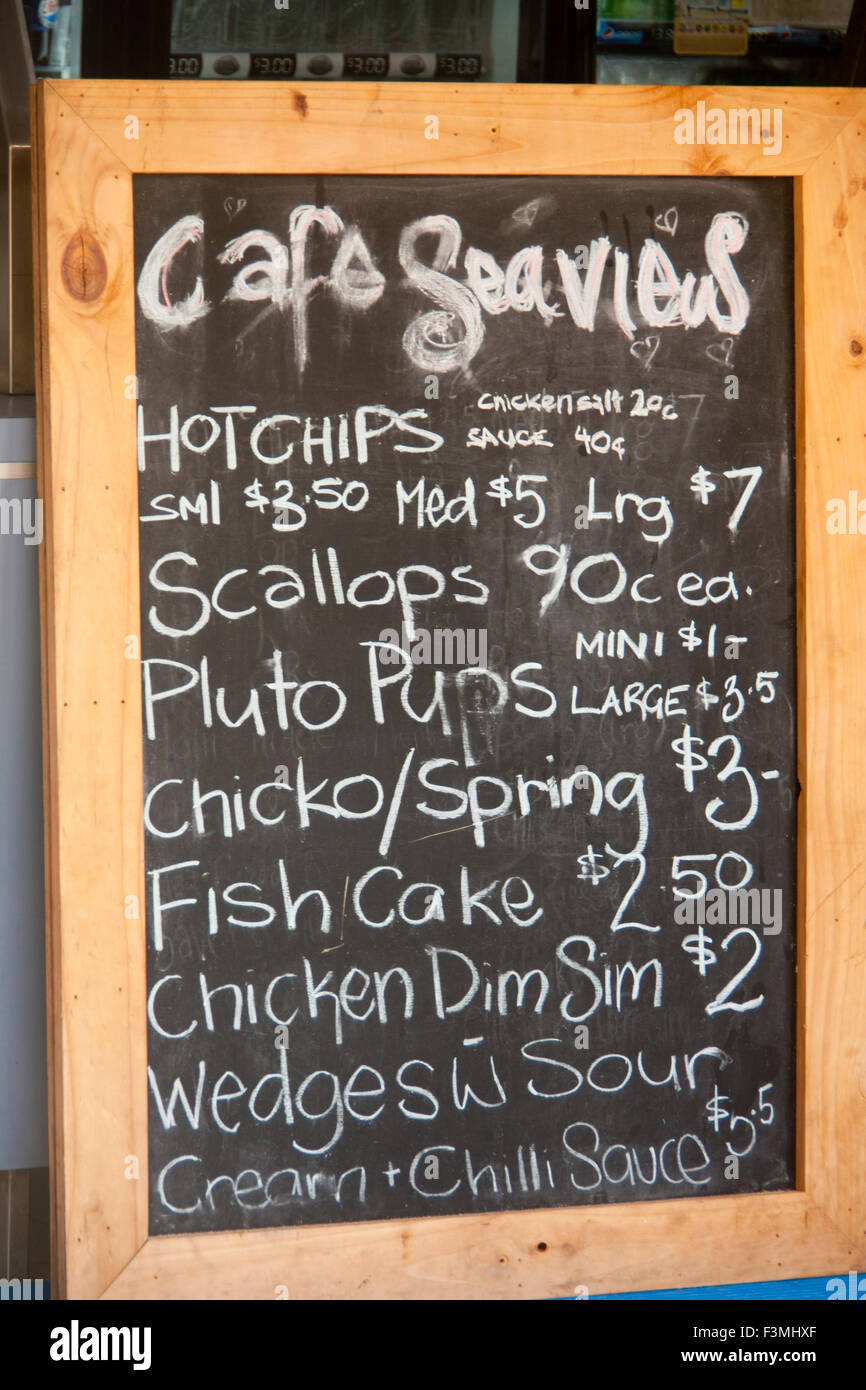 $3.00 $3.00 $3.00 $3.00
Cafe Seaviews
HOT CHIPS chicken salt 20c
SAUCE 40¢
SMl $3.50 Med $5 Lrg $7
Scallops 90c ea.
MINI $1-
Pluto Pups LARGE $3.5
Chicko/Spring $3-
Fish Cake $2.50
Chicken Dim Sim $2
Wedges w Sour
Cream + Chilli Sauce $5.5
alamy stock photo
F3MHXF
www.alamy.com